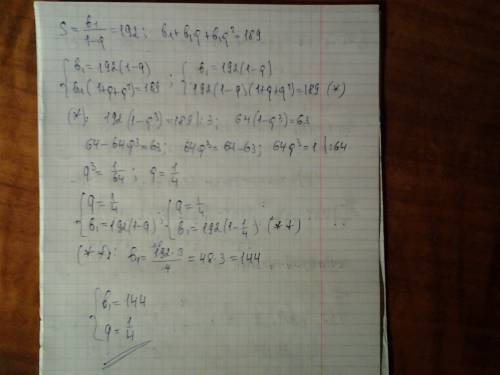 S = b₁/(1-q) = 192; b₁+b₁q+b₁q²=189
{b₁=192(1-q) ; {b₁=192(1-q)
{b₁(1+q+q²)=189 {192(1-q)(1+q+q²)=189 (*)
(*): 192(1-q³)=189 |:3; 64(1-q³)=63
64-64q³=63; 64q³=64-63; 64q³=1 |:64
q³=1/64; q=1/4
{q=1/4 ; {q=1/4
{b₁=192(1-q) {b₁=192(1-1/4) (**)
(**): b₁=192·3/4=48·3=144
{b₁=144
{q=1/4